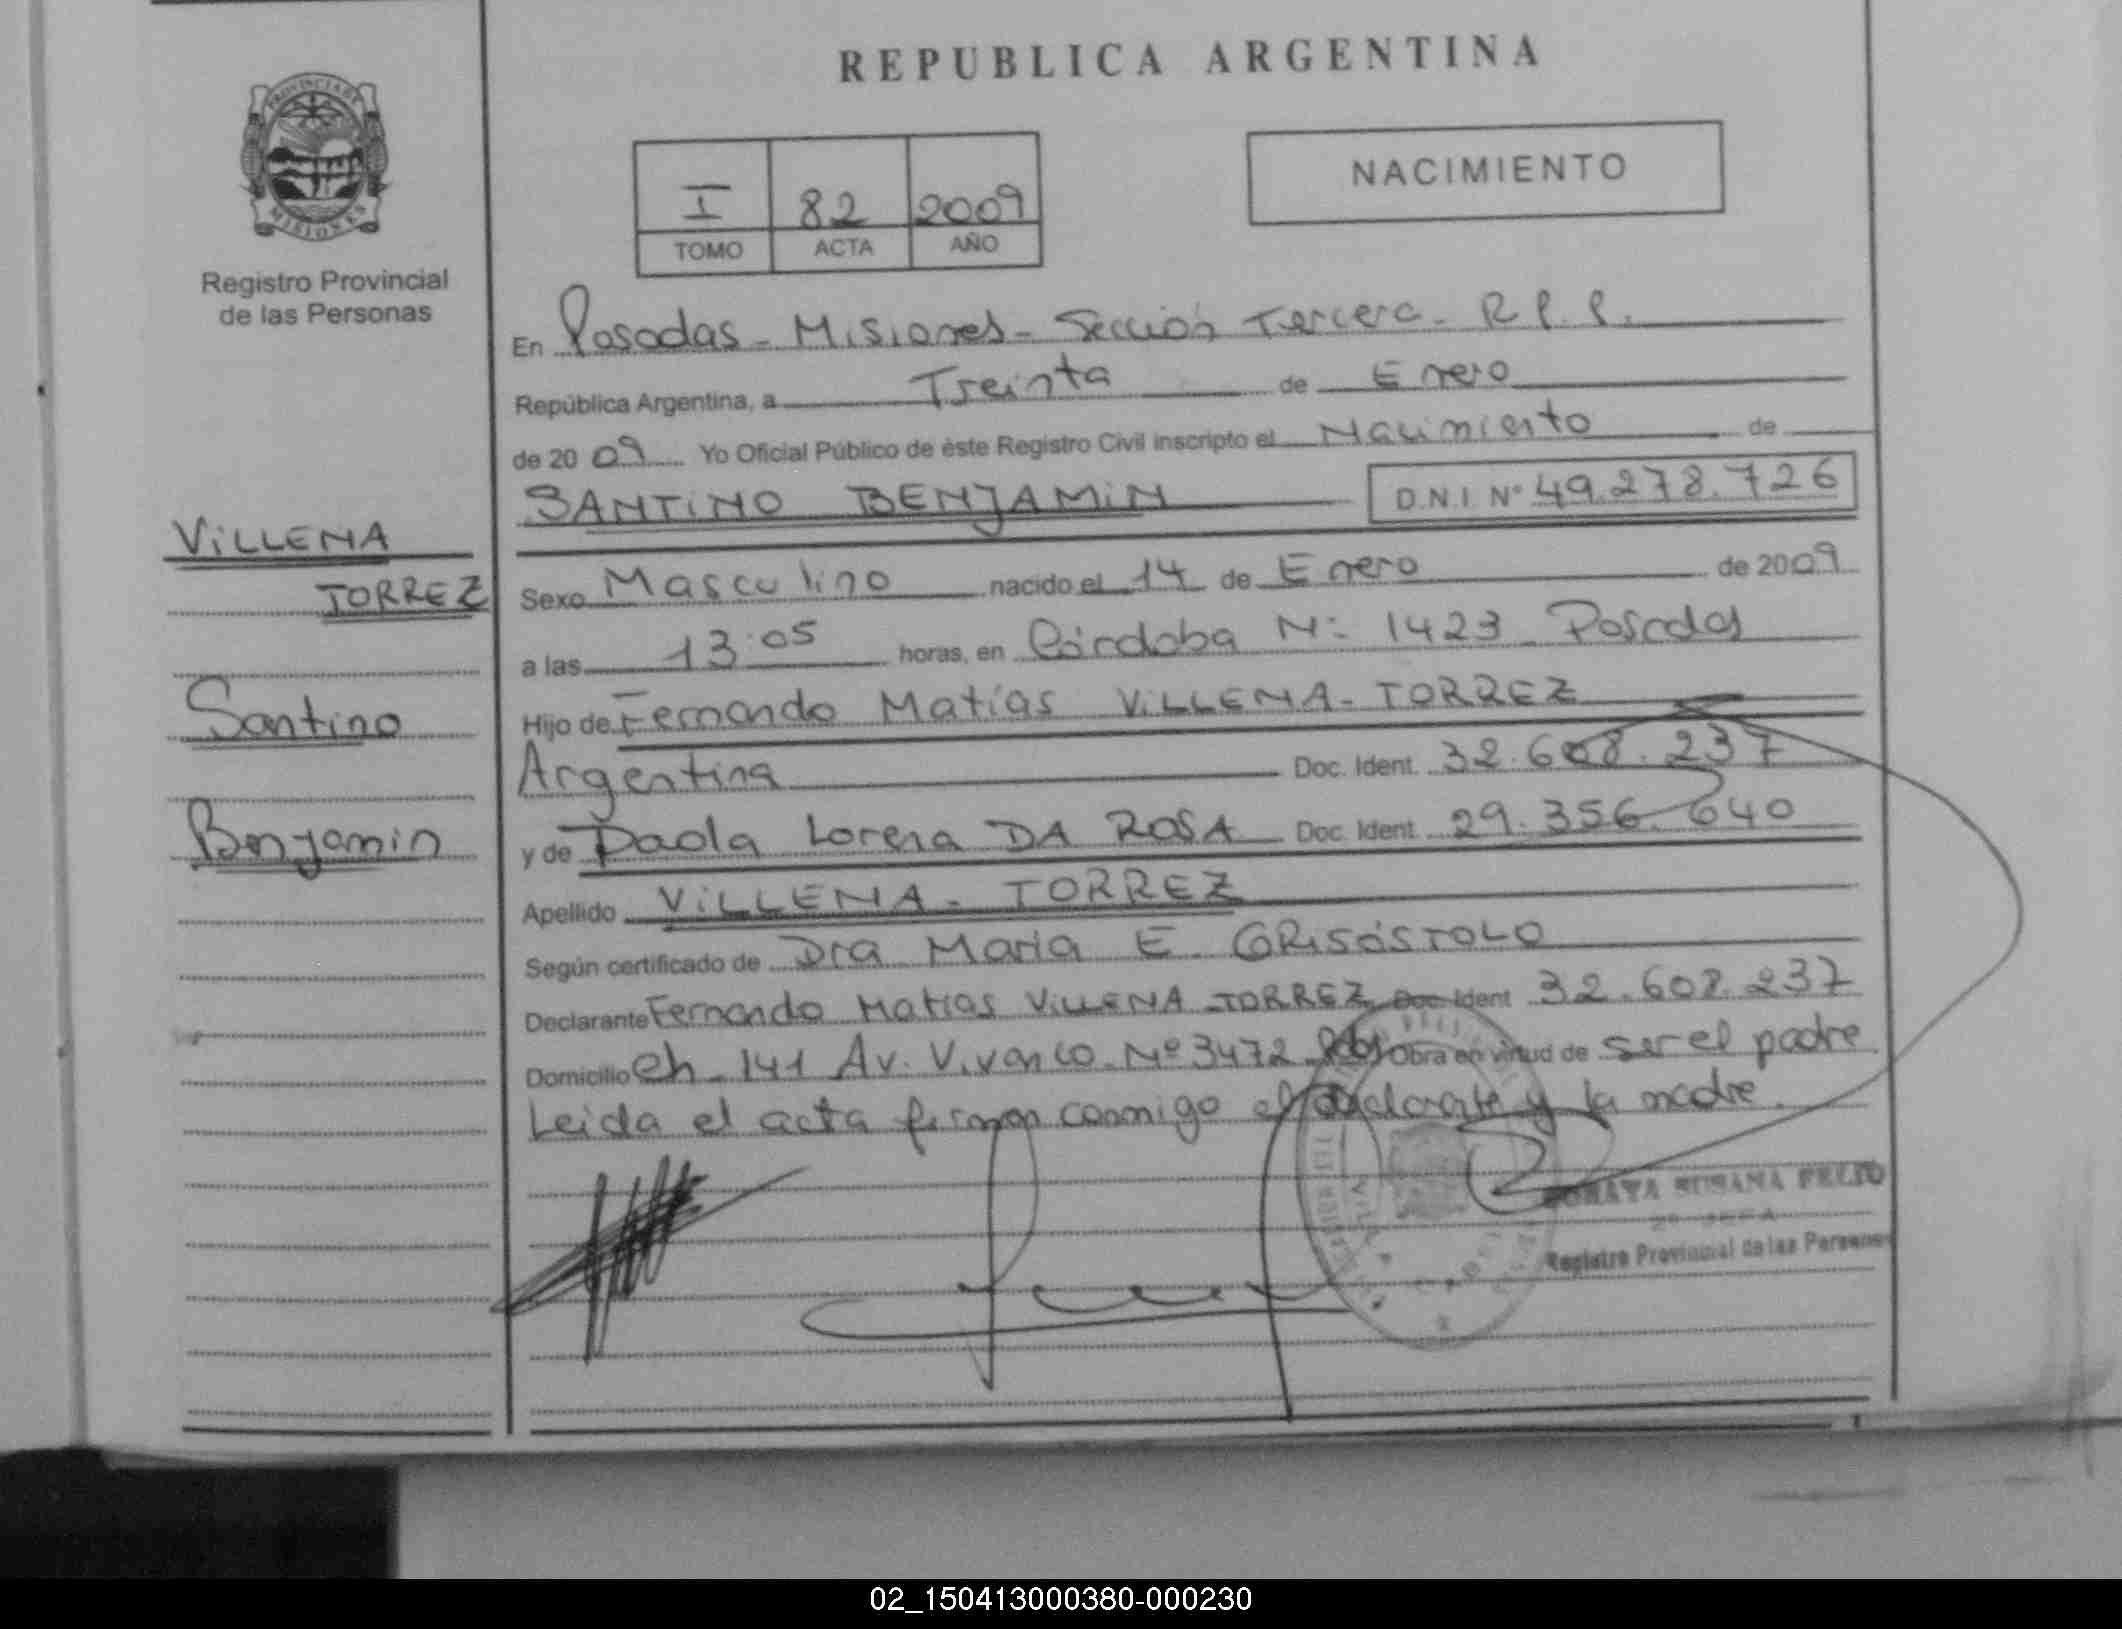 REPUBLICA ARGENTINA
PROVINCIA DE
MISIONES
Registro Provincial
de las Personas
I 82 2009
TOMO ACTA AÑO
NACIMIENTO
En Posadas - Misiones - Sección Tercera - R.P.P.
República Argentina, a Treinta de Enero
de 2009 Yo Oficial Público de éste Registro Civil inscripto el Nacimiento de
SANTINO BENJAMIN D.N.I. Nº 49.278.726
VILLENA
TORREZ
Santino
Benjamin
Sexo Masculino nacido el 14 de Enero de 2009
a las 13:05 horas, en Córdoba Nº 1423 Posadas
Hijo de Fernando Matías VILLENA - TORREZ
Argentina Doc. Ident. 32.608.237
y de Paola Lorena DA ROSA Doc. Ident. 29.356.640
Apellido VILLENA - TORREZ
Según certificado de Dra Maria E GRISÓSTOLO
Declarante Fernando Matias VILLENA - TORREZ Doc. Ident 32.608.237
Domicilio Ch - 141 Av. Vivanco Nº 3472 Obra en virtud de ser el padre
Leida el acta firman conmigo el declarante y la madre.
SUSANA
Registro Provincial de las Personas
02_150413000380-000230